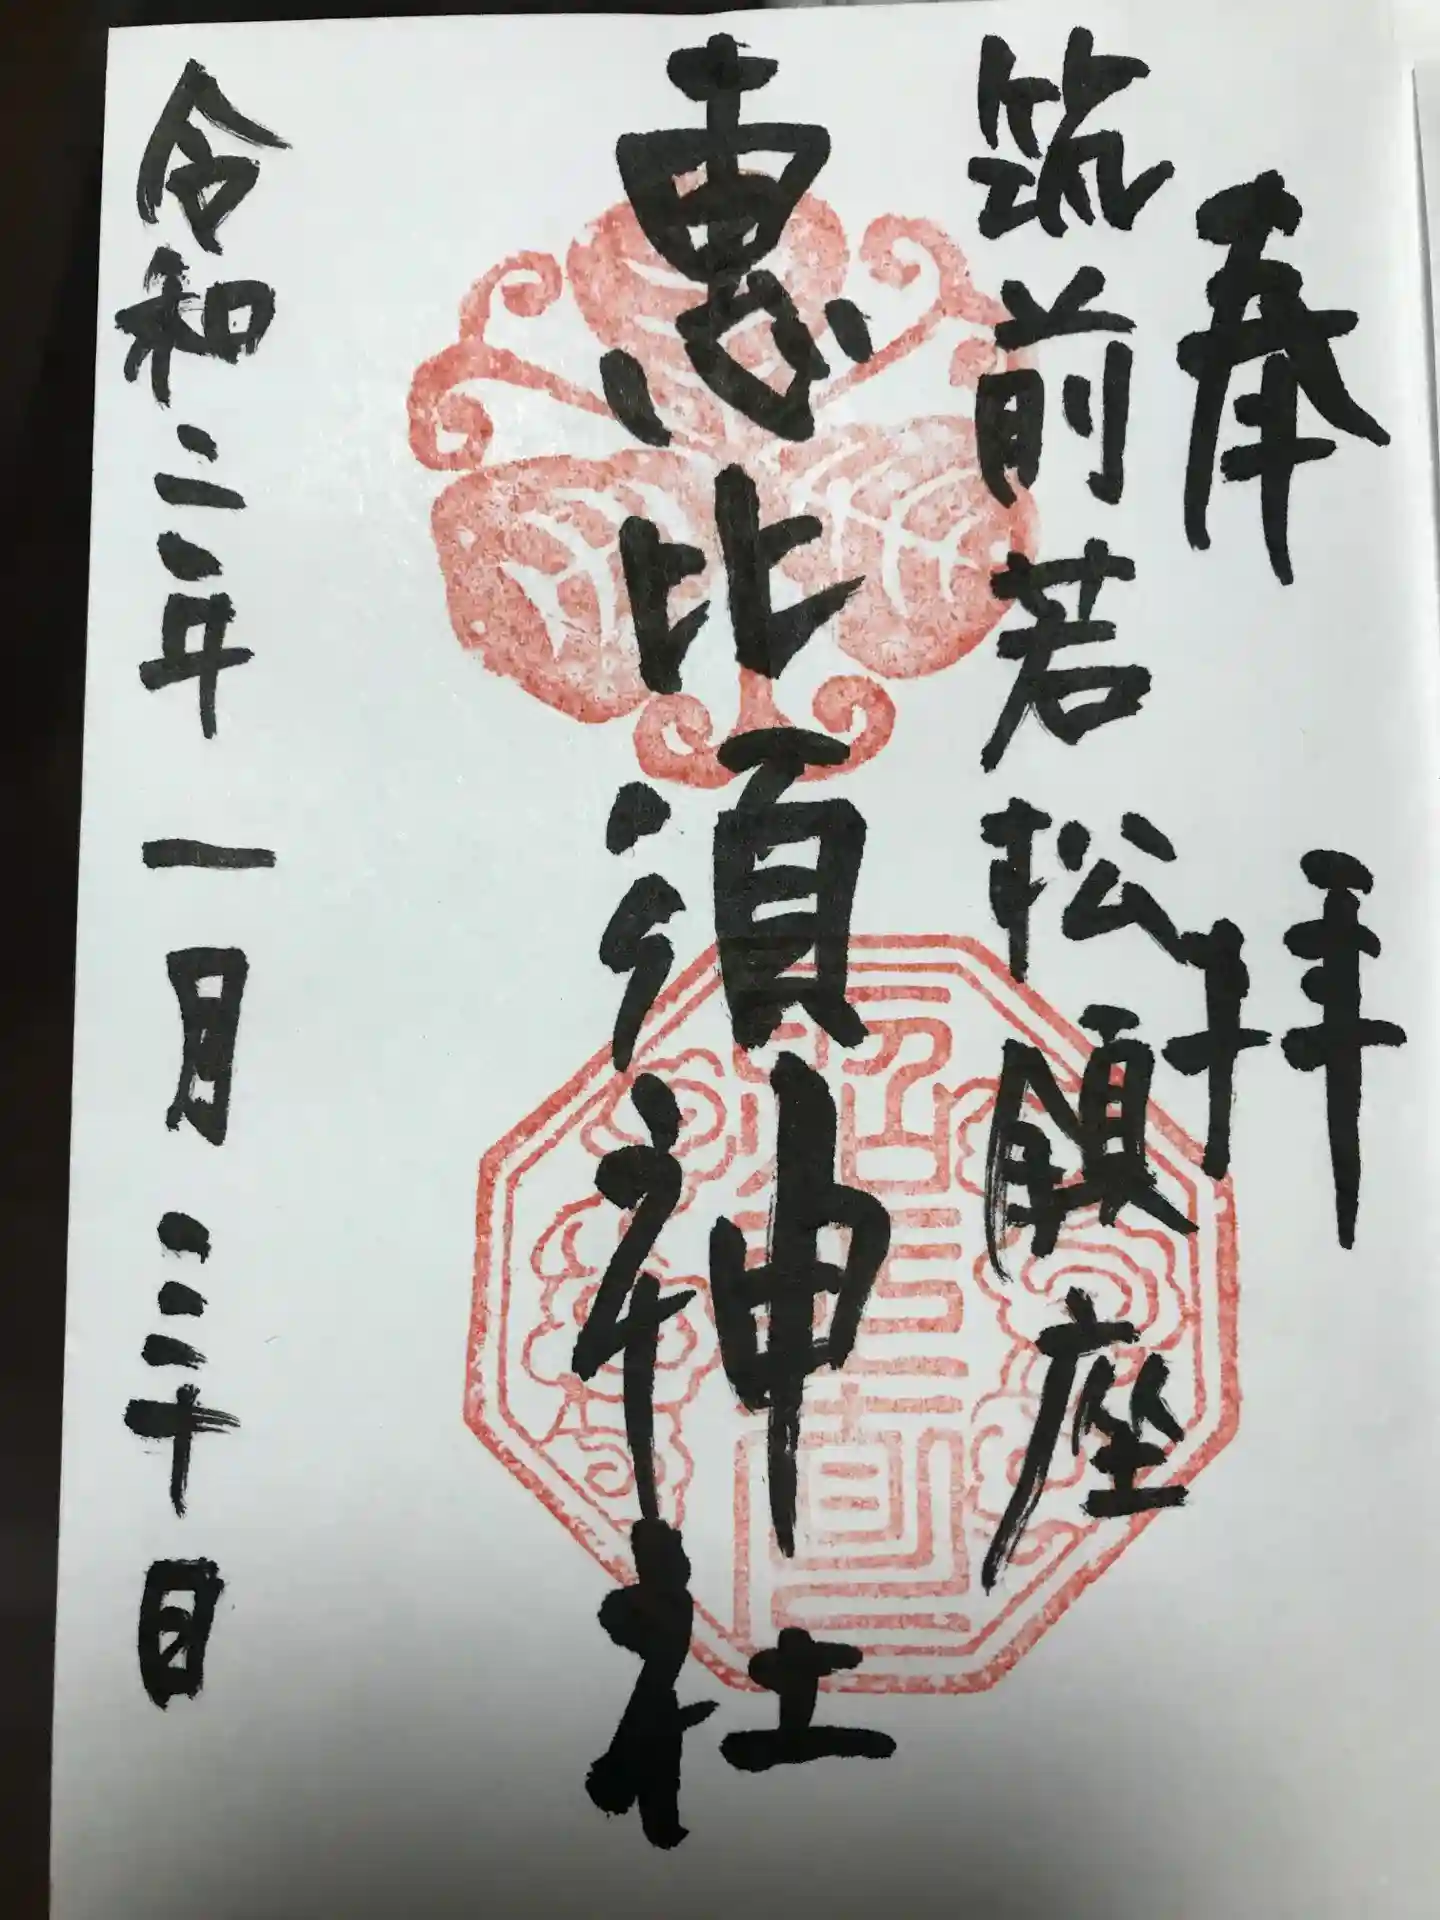 奉拝
筑前若松鎮座
恵比須神社
令和二年一月二十日